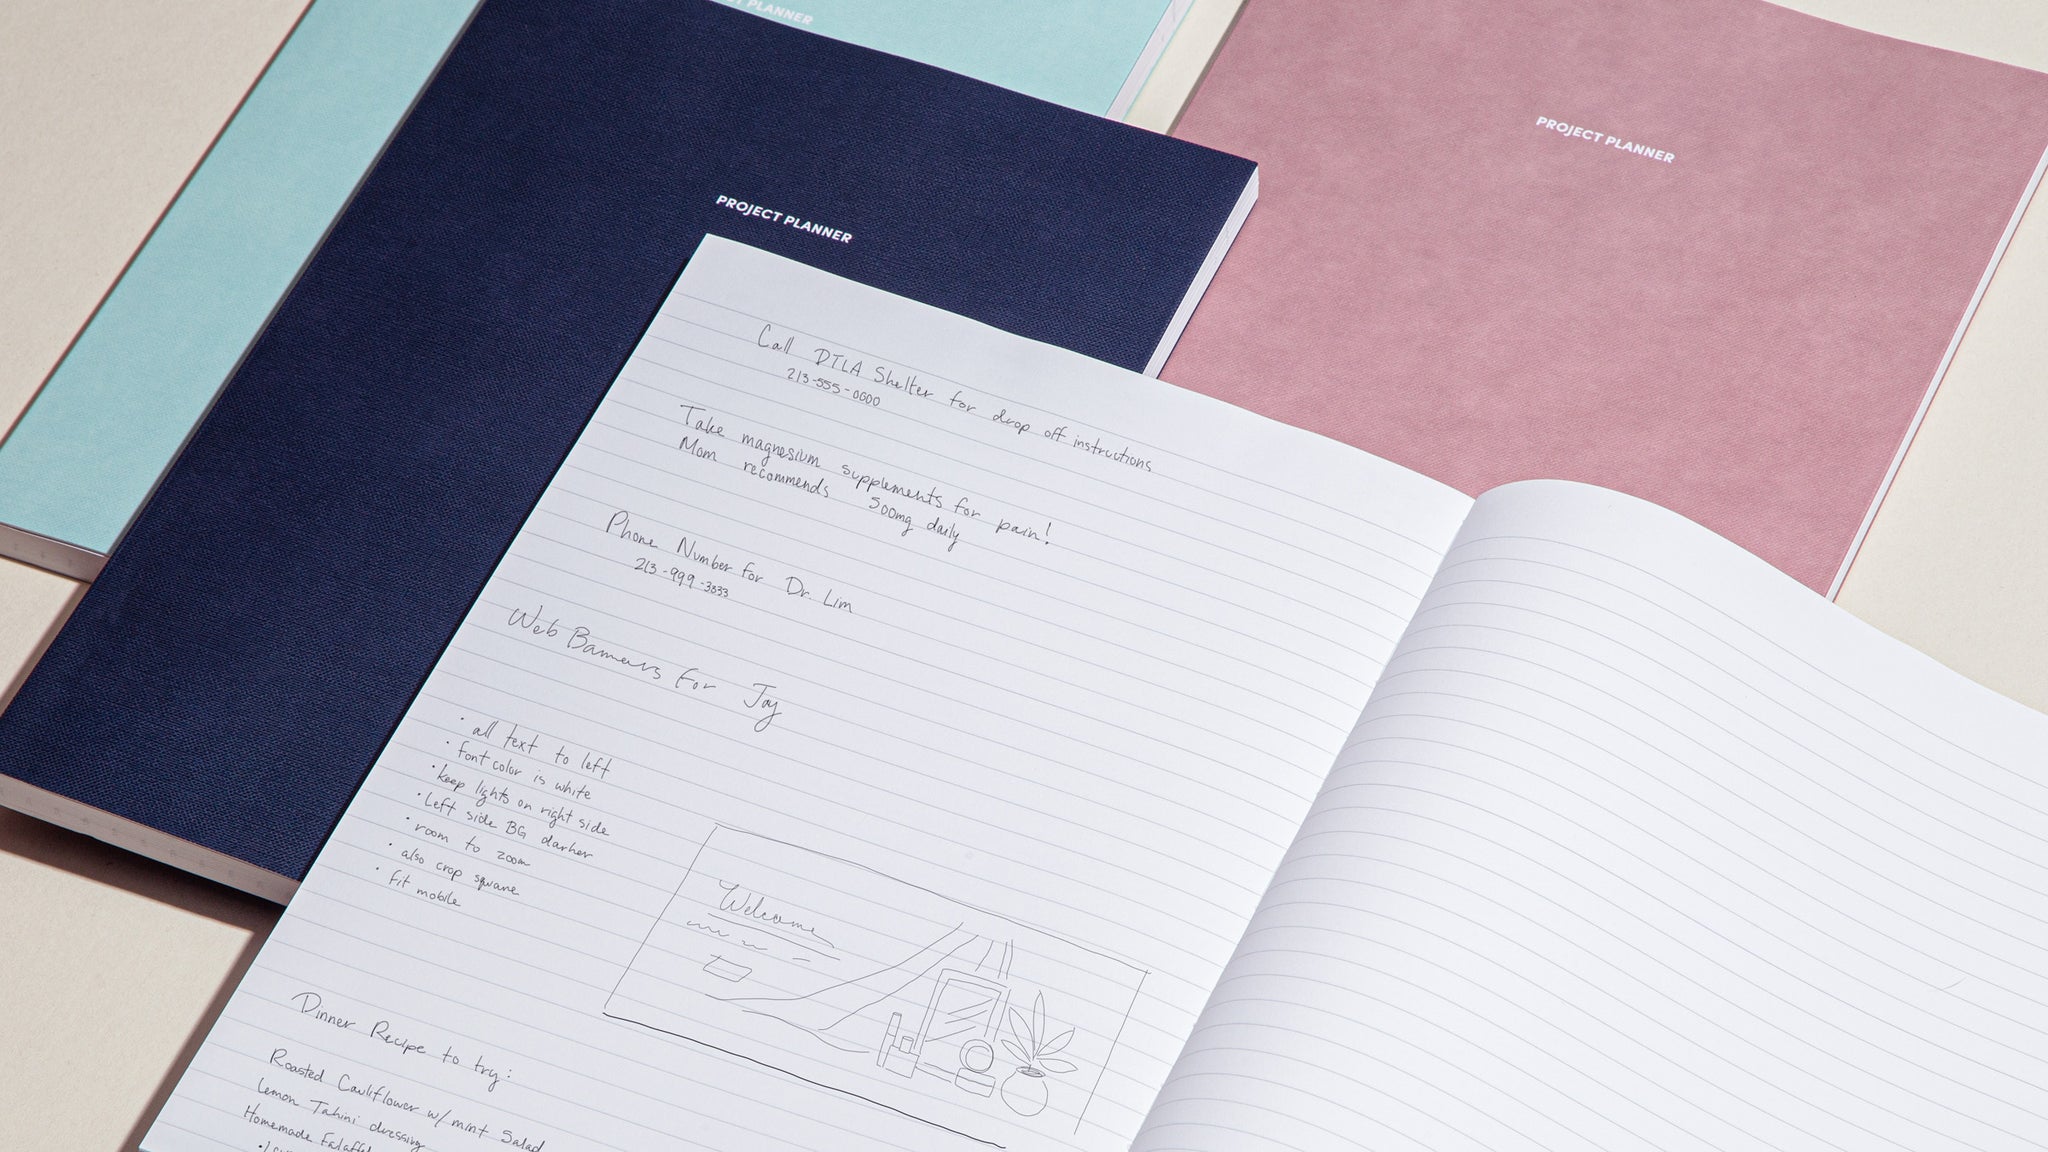 PROJECT PLANNER
PROJECT PLANNER
PROJECT PLANNER
Call DTLA Shelter for drop off instructions
213-555-0600
Take magnesium supplements for pain!
Mom recommends 500mg daily
Phone Number for Dr. Lim
213-999-3333
Web Banners for Joy
• all text to left
• font color is white
• keep lights on right side
• Left side BG darker
• room to zoom
• also crop square
• fit mobile
Welcome
Dinner Recipe to try:
Roasted Cauliflower w/ mint Salad
Lemon Tahini dressing
Homemade Falaffel